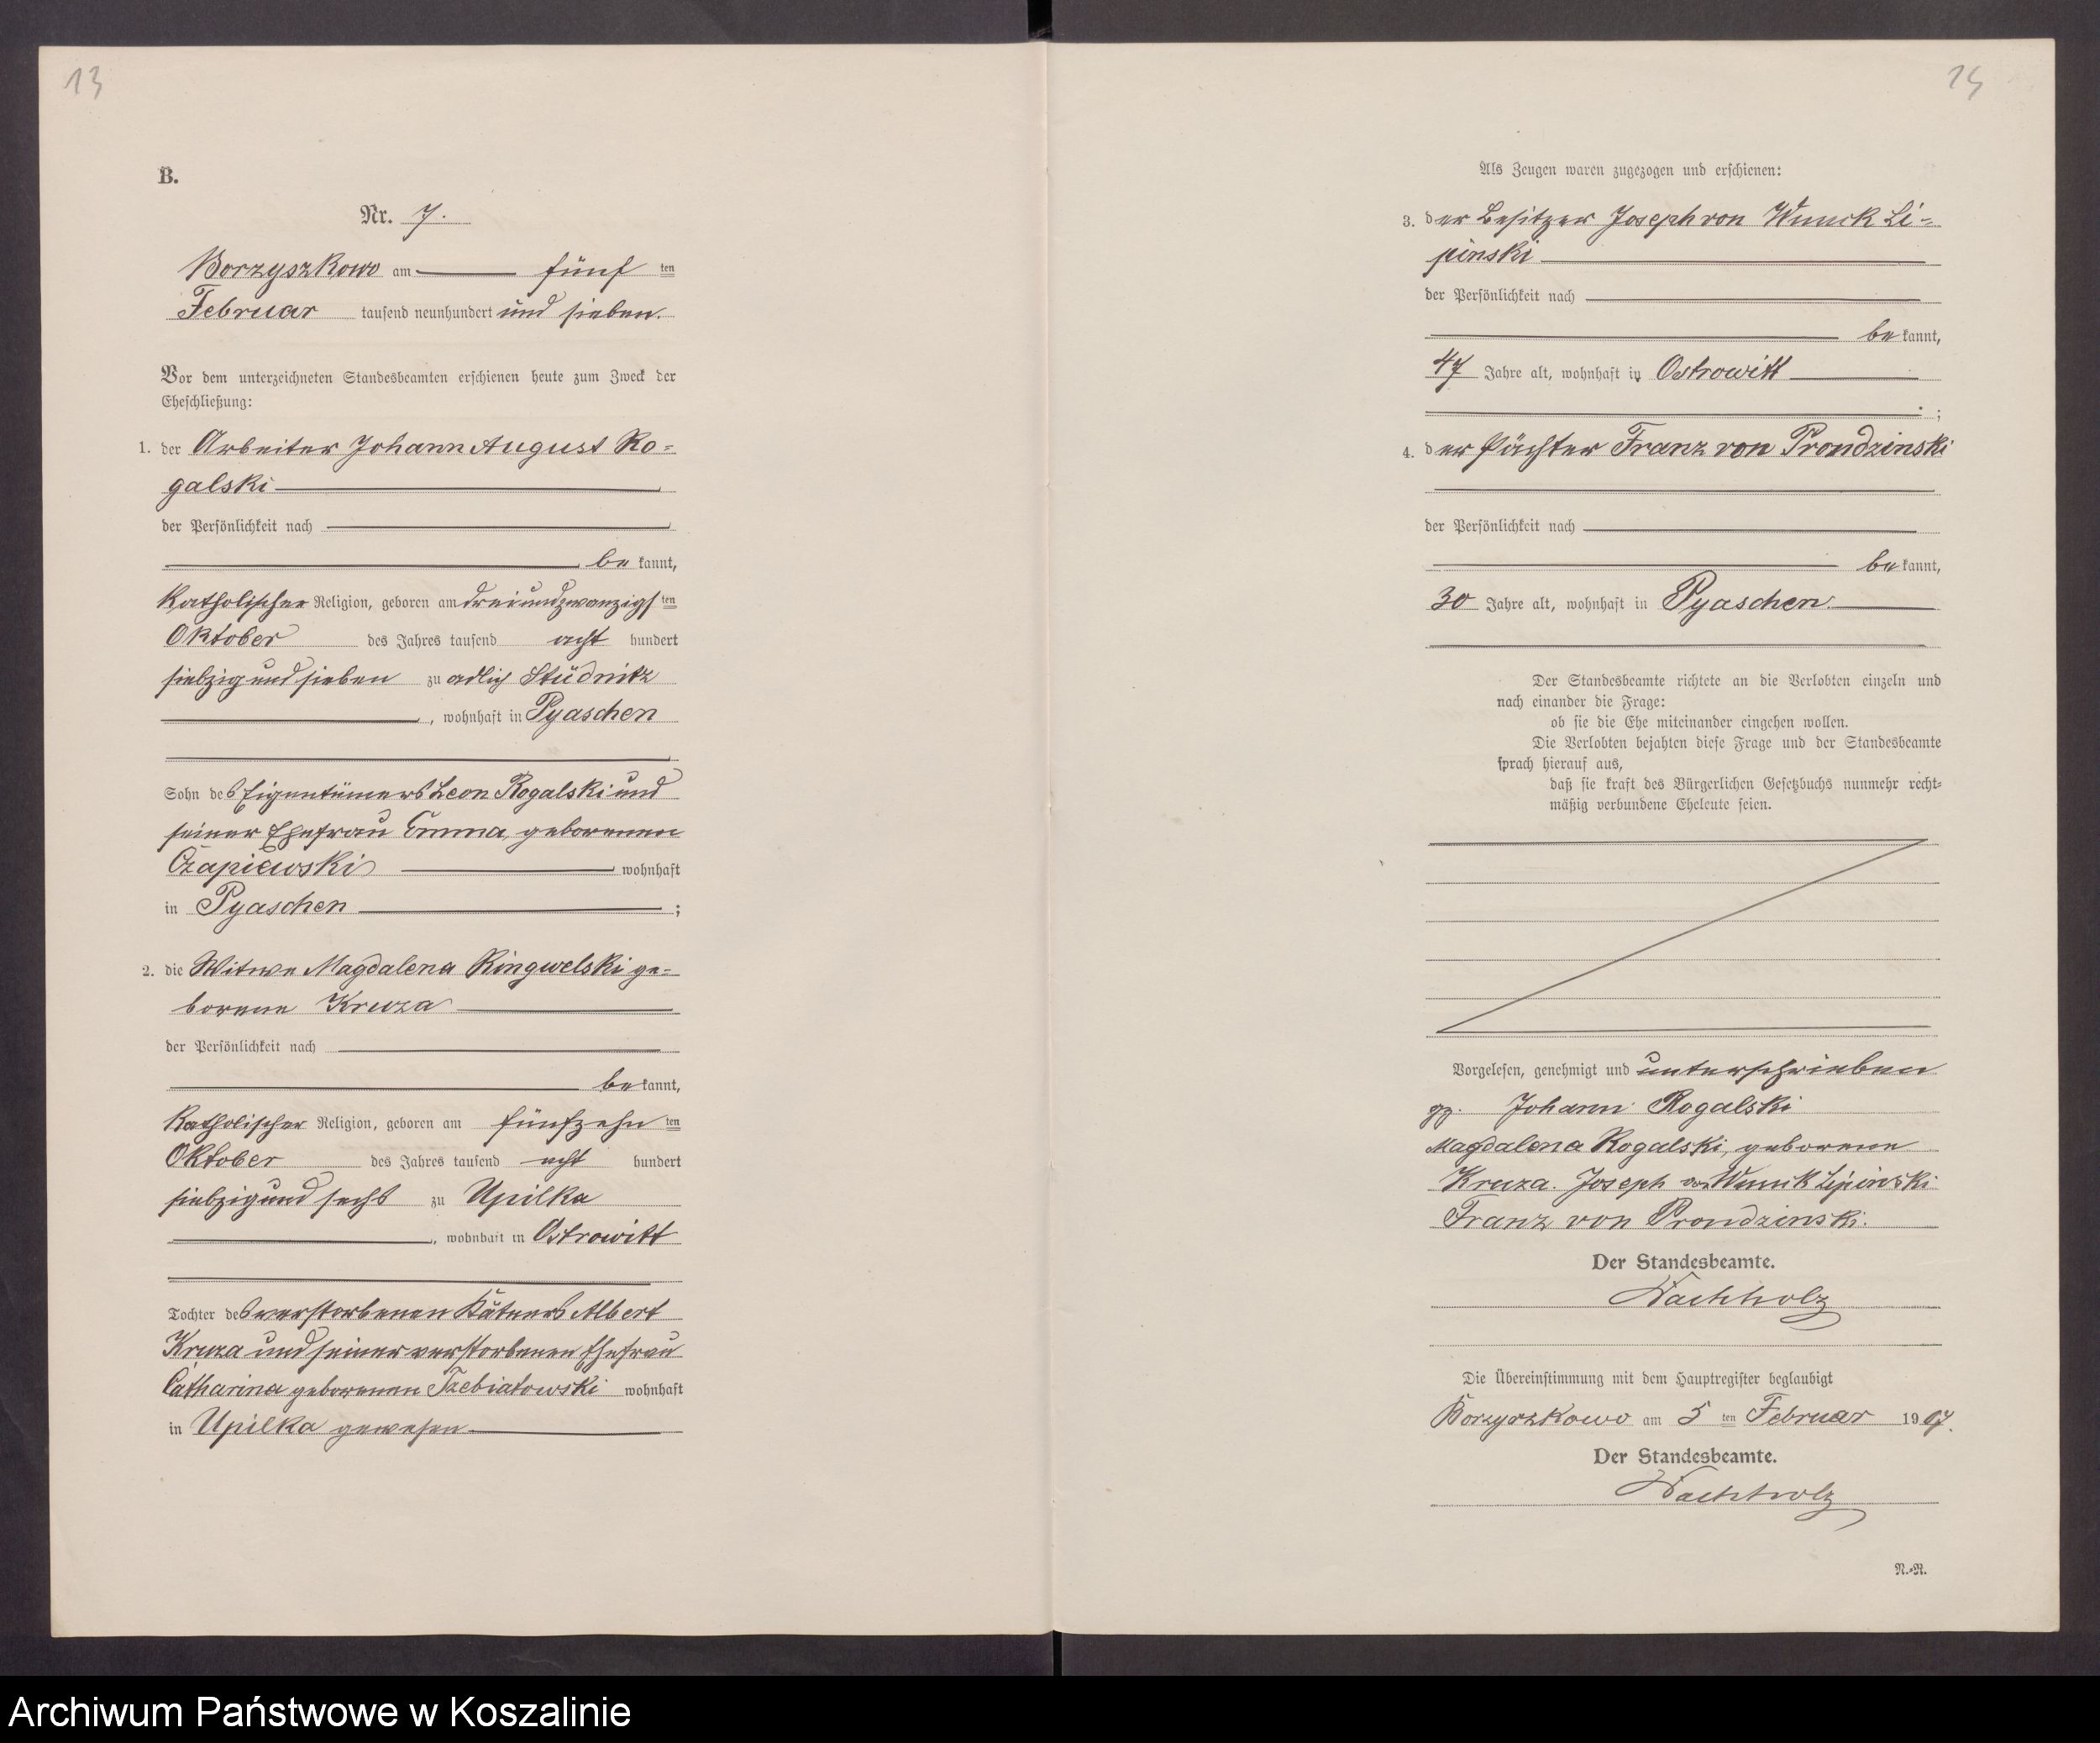 13
B.
Nr. 7.
Borzyszkowo am fünf ten
Februar tausend neunhundert und sieben.
Vor dem unterzeichneten Standesbeamten erschienen heute zum Zweck der
Eheschließung:
1. der Arbeiter Johann August Ro=
galski
der Persönlichkeit nach
be kannt,
Katholischer Religion, geboren am dreiundzwanzigs ten
Oktober des Jahres tausend acht hundert
siebzig und sieben zu adlig Stüdnitz
, wohnhaft in Pyaschen
Sohn des Eigentümers Leon Rogalski und
seiner Ehefrau Emma, geborenen
Czapiewski wohnhaft
in Pyaschen ;
2. die Witwe Magdalena Kingwelski ge=
borene Kruza
der Persönlichkeit nach
be kannt,
Katholischer Religion, geboren am fünfzehn ten
Oktober des Jahres tausend acht hundert
siebzig und sechs zu Upilka
, wohnhaft in Ostrowitt
Tochter des verstorbenen Kätners Albert
Kruza und seiner verstorbenen Ehefrau
Catharina geborenen Trebiatowski wohnhaft
in Upilka gewesen
25
Als Zeugen waren zugezogen und erschienen:
3. der Besitzer Joseph von Wnuck Li=
pinski
der Persönlichkeit nach
be kannt,
47 Jahre alt, wohnhaft in Ostrowitt
;
4. der Pächter Franz von Prondzinski
der Persönlichkeit nach
be kannt,
30 Jahre alt, wohnhaft in Pyaschen.
Der Standesbeamte richtete an die Verlobten einzeln und
nach einander die Frage:
ob sie die Ehe miteinander eingehen wollen.
Die Verlobten bejahten diese Frage und der Standesbeamte
sprach hierauf aus,
daß sie kraft des Bürgerlichen Gesetzbuchs nunmehr recht=
mäßig verbundene Eheleute seien.
Vorgelesen, genehmigt und unterschrieben
gz. Johann Rogalski
Magdalena Rogalski, geborene
Kruza. Joseph von Wnuk Lipinski
Franz von Prondzinski.
Der Standesbeamte.
Wachholz
Die Übereinstimmung mit dem Hauptregister beglaubigt
Borzyszkowo am 5 ten Februar 1907.
Der Standesbeamte.
Wachholz
N.=R.
Archiwum Państwowe w Koszalinie